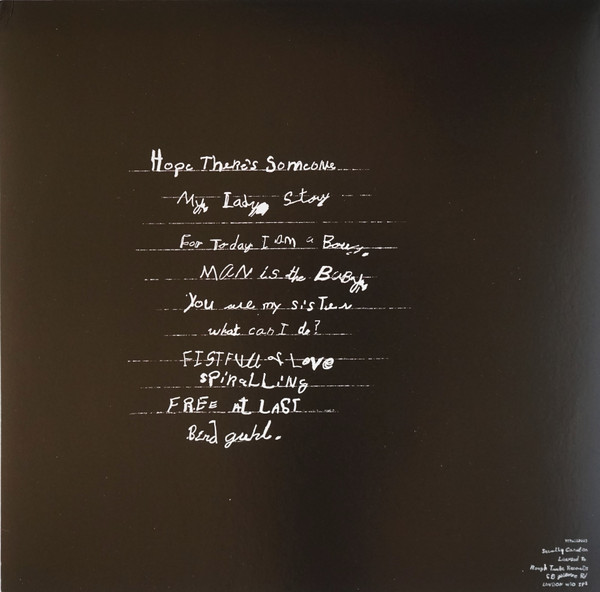 Hope There's Someone
My Lady Story
For Today I Am a Boy
MAN is the Baby
You are my sister
what can I do?
FISTFULL of Love
SPiRaLLiNg
FREE AT LAST
Bird guhl.
Secretly Canadian
Licensed to
Rough Trade Records
LONDON W10